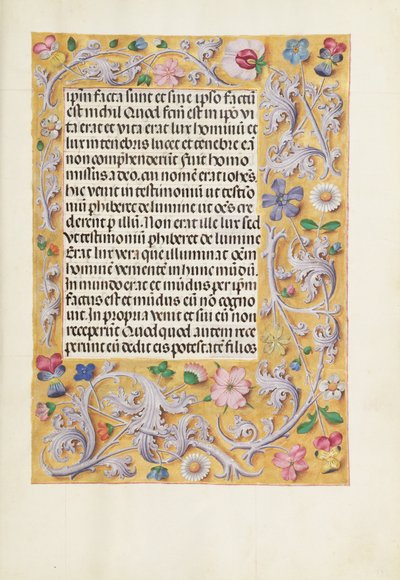 ipm̄ facta sunt et sine ipso factū
est nichil Quod fc̄m est in ip̄o vi
ta erat et vita erat lux hominū et
lux in tenebris lucet et tenebre eā
non comp̄henderūt Fuit homo
missus a deo, cui nomen erat ioh̄es
hic venit in testimoniū ut testīo
niū p̄hiberet de lumine ut oēs cre
derent p illū. Non erat ille lux sed
vt testimoniū p̄hiberet de lumine
Erat lux vera que illuminat oēm
hominē veniente in hunc mūdū
in mundo erat et mūdus per ipm̄
factus est et mūdus eū nō cogno
uit. In propria venit et sui eū non
receperūt Quod quod autem rece
perunt eū dedit eis potestatē filios